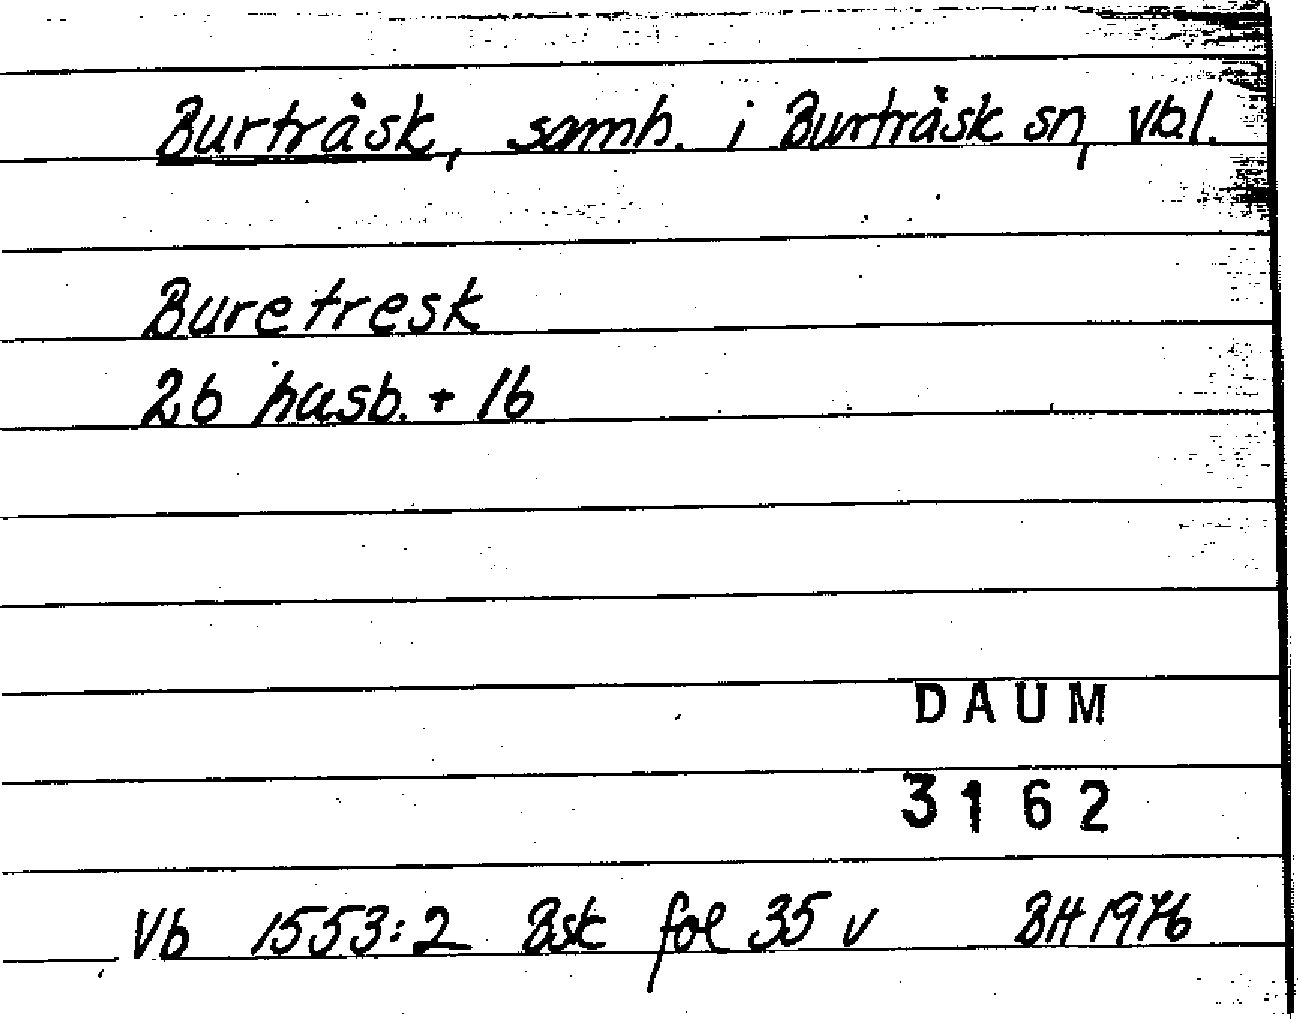 Burträsk, samh. i Burträsk sn, Vbl.
Buretresk
26 husb. + 16
DAUM
3162
Vb 1553:2 Bsk fol 35 v BH 1976